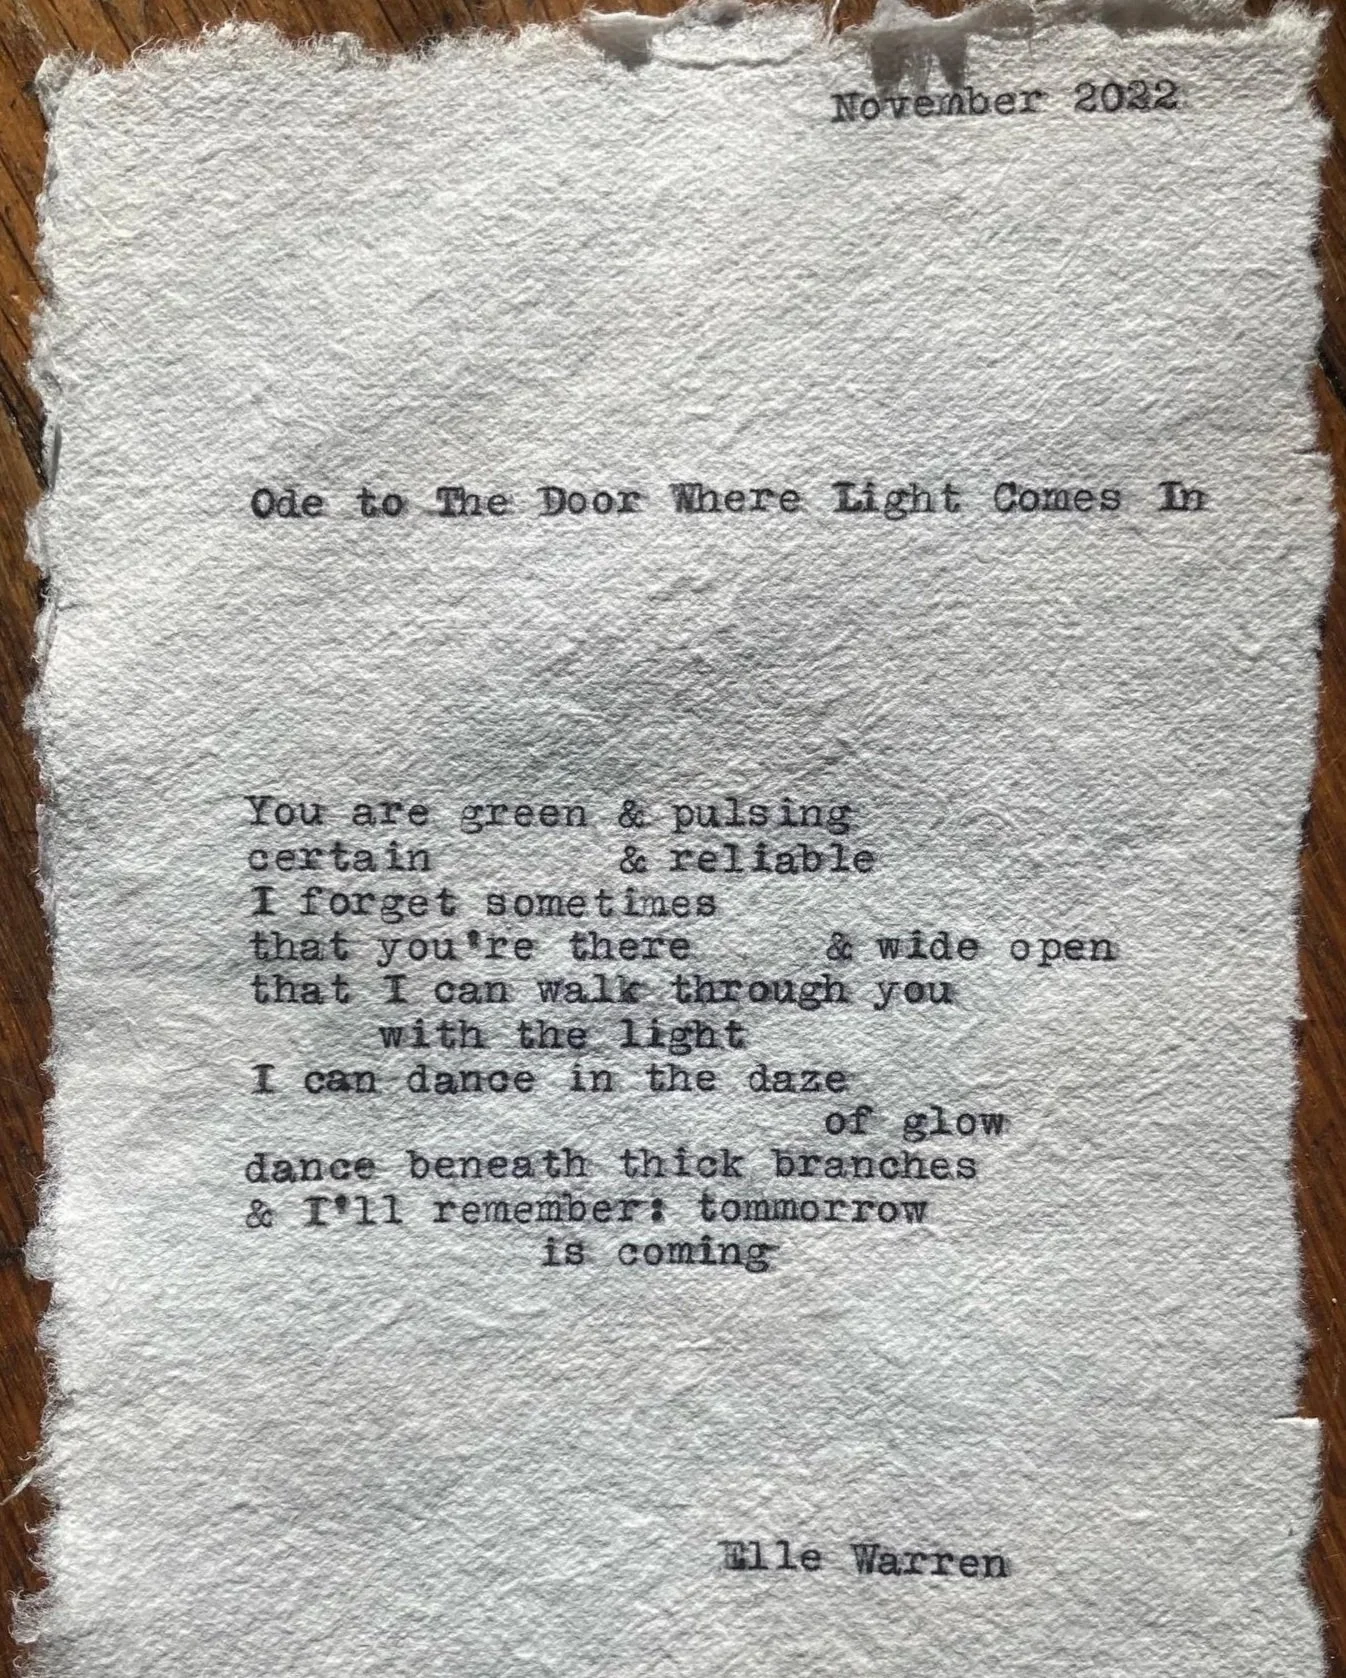 November 2022
Ode to The Door Where Light Comes In
You are green & pulsing
certain & reliable
I forget sometimes
that you're there & wide open
that I can walk through you
with the light
I can dance in the daze
of glow
dance beneath thick branches
& I'll remember: tommorrow
is coming
Elle Warren